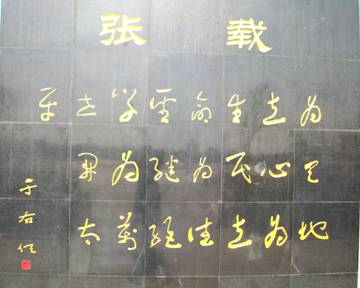 张载
为天地
立心为
生民立
命为往
聖继絶
学为萬
世開太
平
于右任